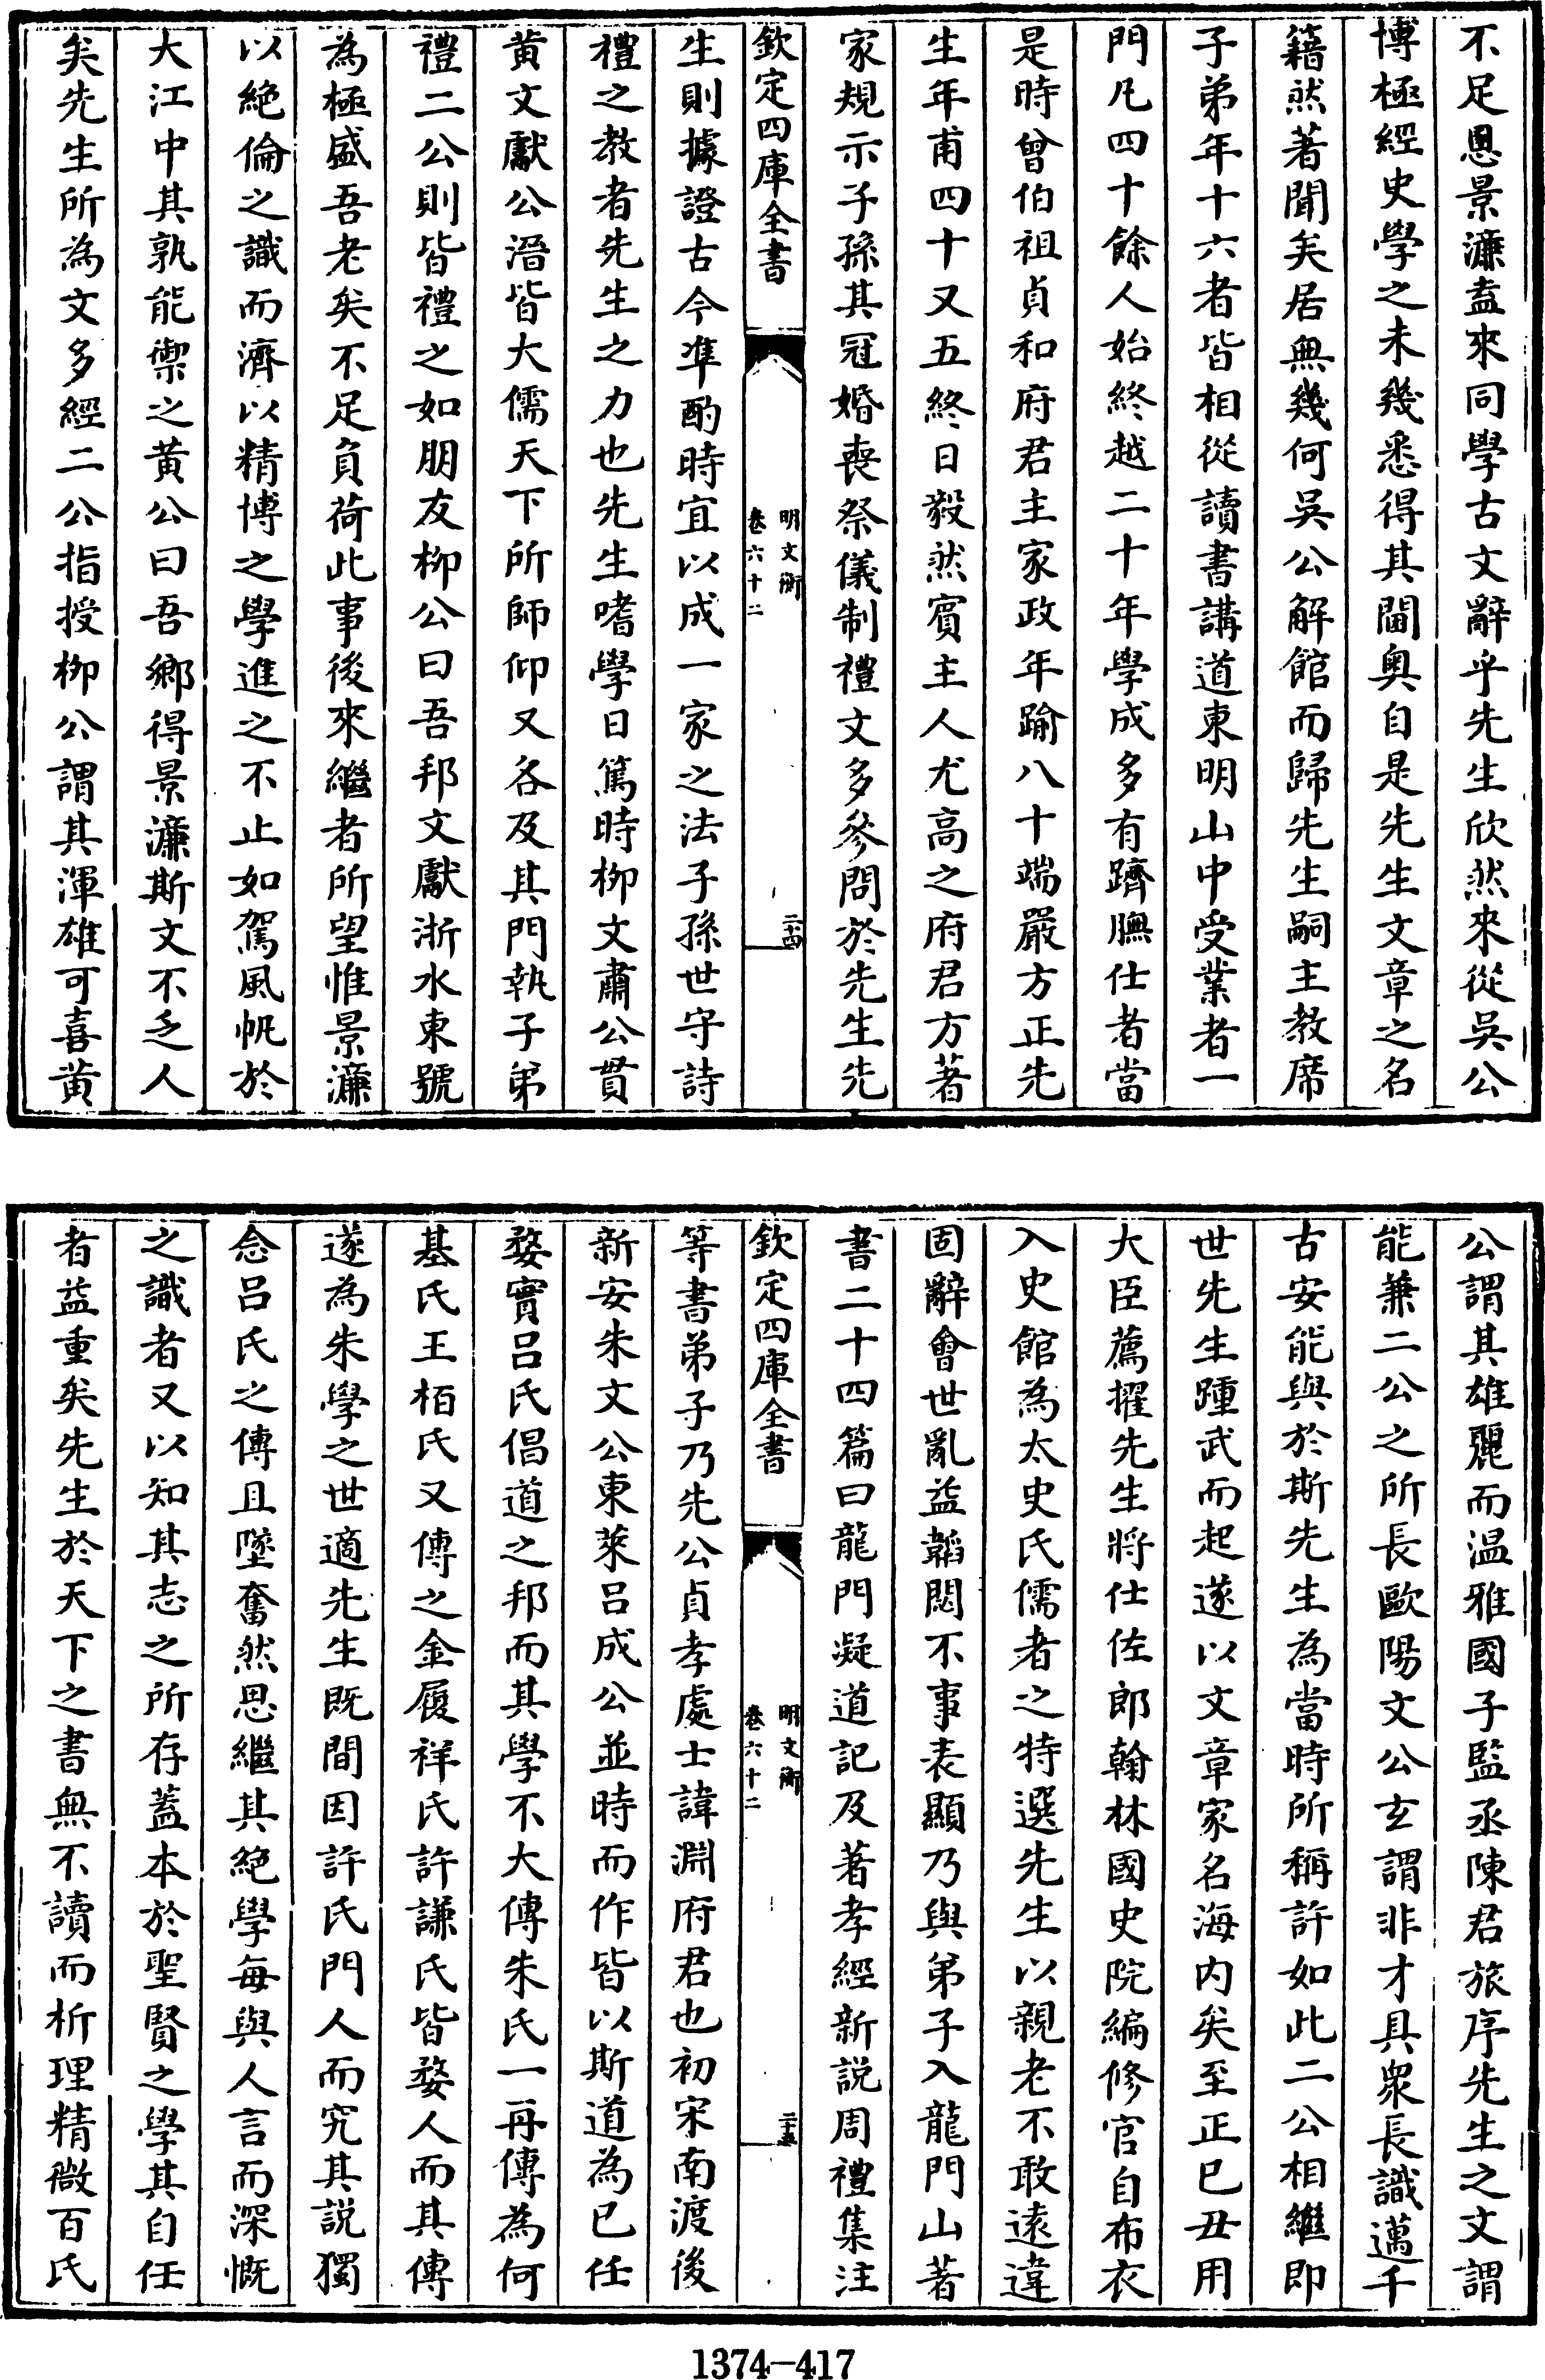 不足恩景濂盍來同學古文辭乎先生欣然來從吳公
博極經史學之未幾悉得其閫奧自是先生文章之名
籍然著聞矣居無幾何吳公解館而歸先生嗣主教席
子弟年十六者皆相從讀書講道東明山中受業者一
門凡四十餘人始終越二十年學成多有躋膴仕者當
是時曾伯祖貞和府君主家政年踰八十端嚴方正先
生年甫四十又五終日毅然賓主人尤高之府君方著
家規示子孫其冠婚喪祭儀制禮文多參問於先生先
欽定四庫全書
明文衡
卷六十二
二十四
生則據證古今凖酌時宜以成一家之法子孫世守詩
禮之教者先生之力也先生嗜學日篤時柳文肅公貫
黃文獻公溍皆大儒天下所師仰又各及其門執子弟
禮二公則皆禮之如朋友柳公曰吾邦文獻浙水東號
為極盛吾老矣不足負荷此事後來繼者所望惟景濂
以絶倫之識而濟以精博之學進之不止如駕風帆於
大江中其孰能禦之黃公曰吾鄉得景濂斯文不乏人
矣先生所為文多經二公指授柳公謂其渾雄可喜黃
公謂其雄麗而温雅國子監丞陳君旅序先生之文謂
能兼二公之所長歐陽文公玄謂非才具衆長識邁千
古安能與於斯先生為當時所稱許如此二公相繼即
世先生踵武而起遂以文章家名海内矣至正已丑用
大臣薦擢先生將仕佐郎翰林國史院編修官自布衣
入史館為太史氏儒者之特選先生以親老不敢遠違
固辭會世亂益韜閟不事表顯乃與弟子入龍門山著
書二十四篇曰龍門凝道記及著孝經新説周禮集注
欽定四庫全書
明文衡
卷六十二
二十五
等書弟子乃先公貞孝處士諱淵府君也初宋南渡後
新安朱文公東萊吕成公並時而作皆以斯道為已任
婺實吕氏倡道之邦而其學不大傳朱氏一再傳為何
基氏王栢氏又傳之金履祥氏許謙氏皆婺人而其傳
遂為朱學之世適先生既間因許氏門人而究其説獨
念吕氏之傳且墜奮然思繼其絶學每與人言而深慨
之識者又以知其志之所存蓋本於聖賢之學其自任
者益重矣先生於天下之書無不讀而析理精微百氏
1374-417